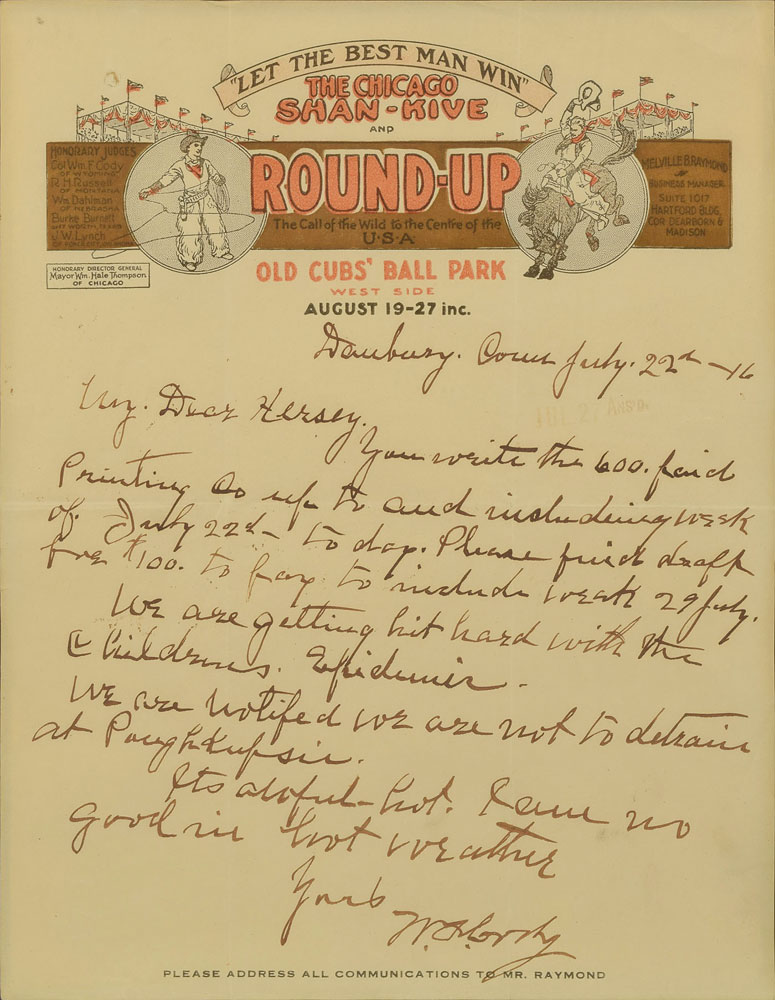 "LET THE BEST MAN WIN"
THE CHICAGO
SHAN-KIVE
AND
ROUND-UP
The Call of the Wild to the Centre of the
U.S.A.
HONORARY JUDGES
Col. Wm. F. Cody
OF WYOMING
R. H. Russell
OF MONTANA
Wm. Dahlman
OF NEBRASKA
Burke Burnett
FT WORTH, TEXAS
J. W. Lynch
HONORARY DIRECTOR GENERAL
Mayor Wm. Hale Thompson
OF CHICAGO
MELVILLE B. RAYMOND
BUSINESS MANAGER
SUITE 1017
HARTFORD BLDG.
COR DEARBORN &
MADISON
OLD CUBS' BALL PARK
WEST SIDE
AUGUST 19-27 inc.
Danbury. Conn July. 22nd -16
JUL 27 ANS'D.
My. Dear Hersey.
You write the 600. paid
Printing Co up to and including week
of. July 22d - to day. Please find draft
for $100. to pay to include week 29 July.
We are getting hit hard with the
Childrens. Epidemic.
We are notifed we are not to detrain
at Poughkeepsie.
Its awful-hot. I am no
good in hot weather
Yours
W. F. Cody
PLEASE ADDRESS ALL COMMUNICATIONS TO MR. RAYMOND